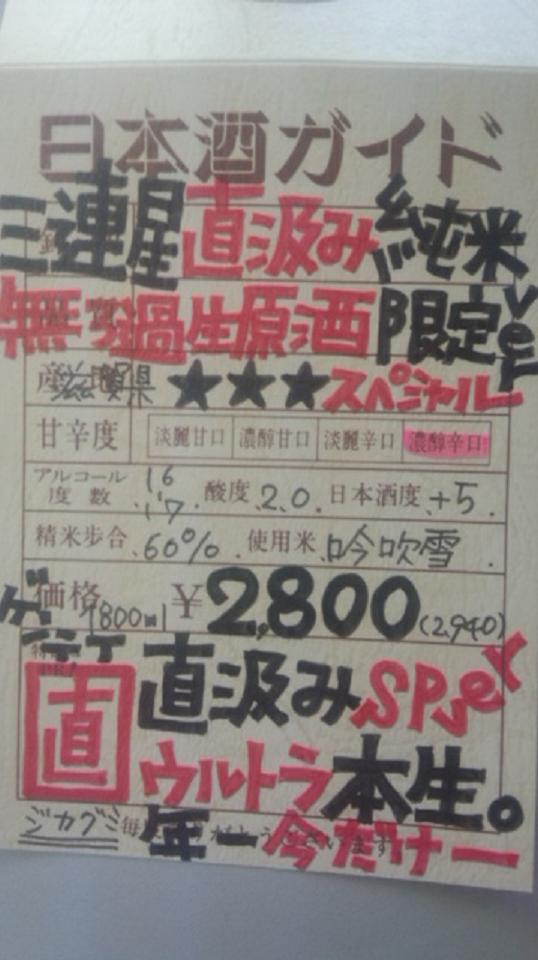 日本酒ガイド
三連星直汲み純米
無濾過生原酒限定ver
滋賀県 ★★★スペシャル
甘辛度 淡麗甘口 濃醇甘口 淡麗辛口 濃醇辛口
アルコール度数 16 17 酸度 2.0 日本酒度 +5
精米歩合 60% 使用米 吟吹雪
価格 1800ml ¥2,800(2,940)
ゲンテイ
直 直汲みSPver
ウルトラ本生。
ジカグミ 年一今だけー